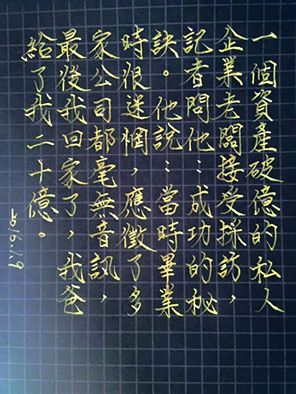 一個資產破億的私人
企業老闆接受採訪，
記者問他：成功的秘
訣。他說：當時畢業
時很迷惘，應徵了多
家公司都毫無音訊，
最後我回家了，我爸
給了我二十億。
2016.1.9